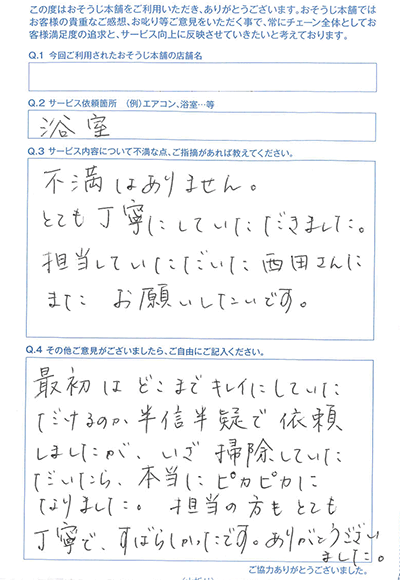 この度はおそうじ本舗をご利用いただき、ありがとうございます。おそうじ本舗では
お客様の貴重なご感想、お叱り等ご意見をいただく事で、常にチェーン全体としてお
客様満足度の追求と、サービス向上に反映させていきたいと考えております。
Q.1 今回ご利用されたおそうじ本舗の店舗名
Q.2 サービス依頼箇所 （例）エアコン、浴室…等
浴室
Q.3 サービス内容について不満な点、ご指摘があれば教えてください。
不満はありません。
とても丁寧にしていただきました。
担当していただいた西田さんに
また お願いしたいです。
Q.4 その他ご意見がございましたら、ご自由にご記入ください。
最初は どこまでキレイにしていた
だけるのか半信半疑で 依頼
しましたが、いざ 掃除していた
だいたら、本当に ピカピカに
なりました。担当の方も とても
丁寧で、すばらしかったです。ありがとうござい
ました。
ご協力ありがとうございました。